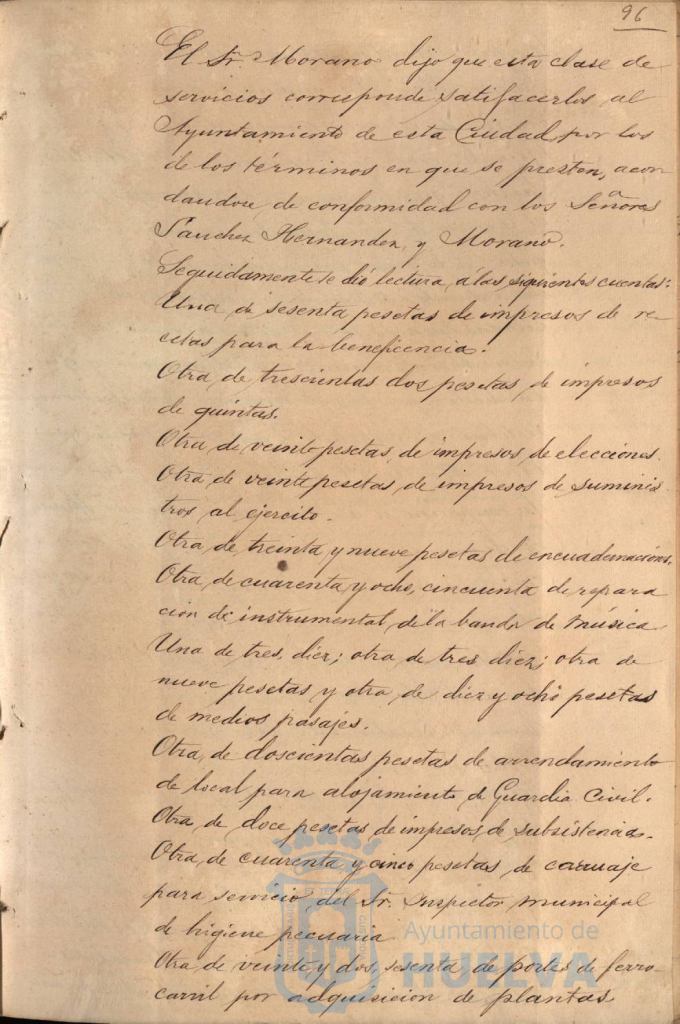 96
El Sr. Morano dijo que esta clase de
servicios corresponde satifacerlos al
Ayuntamiento de esta Ciudad por los
de los términos en que se presten, acor
dandose de conformidad con los Señores
Sanchez Hernandez y Morano.
Seguidamente se dió lectura a las siguientes cuentas:
Una de sesenta pesetas de impresos de re
cetas para la beneficencia.
Otra de trescientas dos pesetas de impresos
de quintas.
Otra de veinte pesetas de impresos de elecciones.
Otra de veinte pesetas de impresos de suminis
tros al ejercito.
Otra de treinta y nueve pesetas de encuadernaciones.
Otra de cuarenta y ocho, cincuenta de repara
ción de instrumental de la banda de música
Una de tres, diez; otra de tres diez; otra de
nueve pesetas y otra de diez y ocho pesetas
de medios pasajes.
Otra de doscientas pesetas de arrendamiento
de local para alojamiento de Guardia Civil.
Otra de doce pesetas de impresos de subsistencia.
Otra de cuarenta y cinco pesetas de carruaje
para servicio del Sr. Inspector municipal
de higiene pecuaria
Otra de veinte y dos, sesenta de portes de ferro-
carril por adquisicion de plantas
Ayuntamiento de
HUELVA